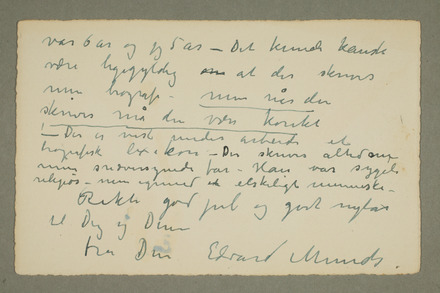 var 6 år og jeg 5 år – Det kunde kanske
være ligegyldig om at der skrives
min biografi – men når den
skrives må den være korekt
! – Der er vist under arbeide et
biografisk lexikon – Der skrives altid om
min far – Han var sygelig
religiøs – men et elskeligt menneske –
Rikti god jul og godt nytår
til Dig og Dine
fra Din Edvard Munch.